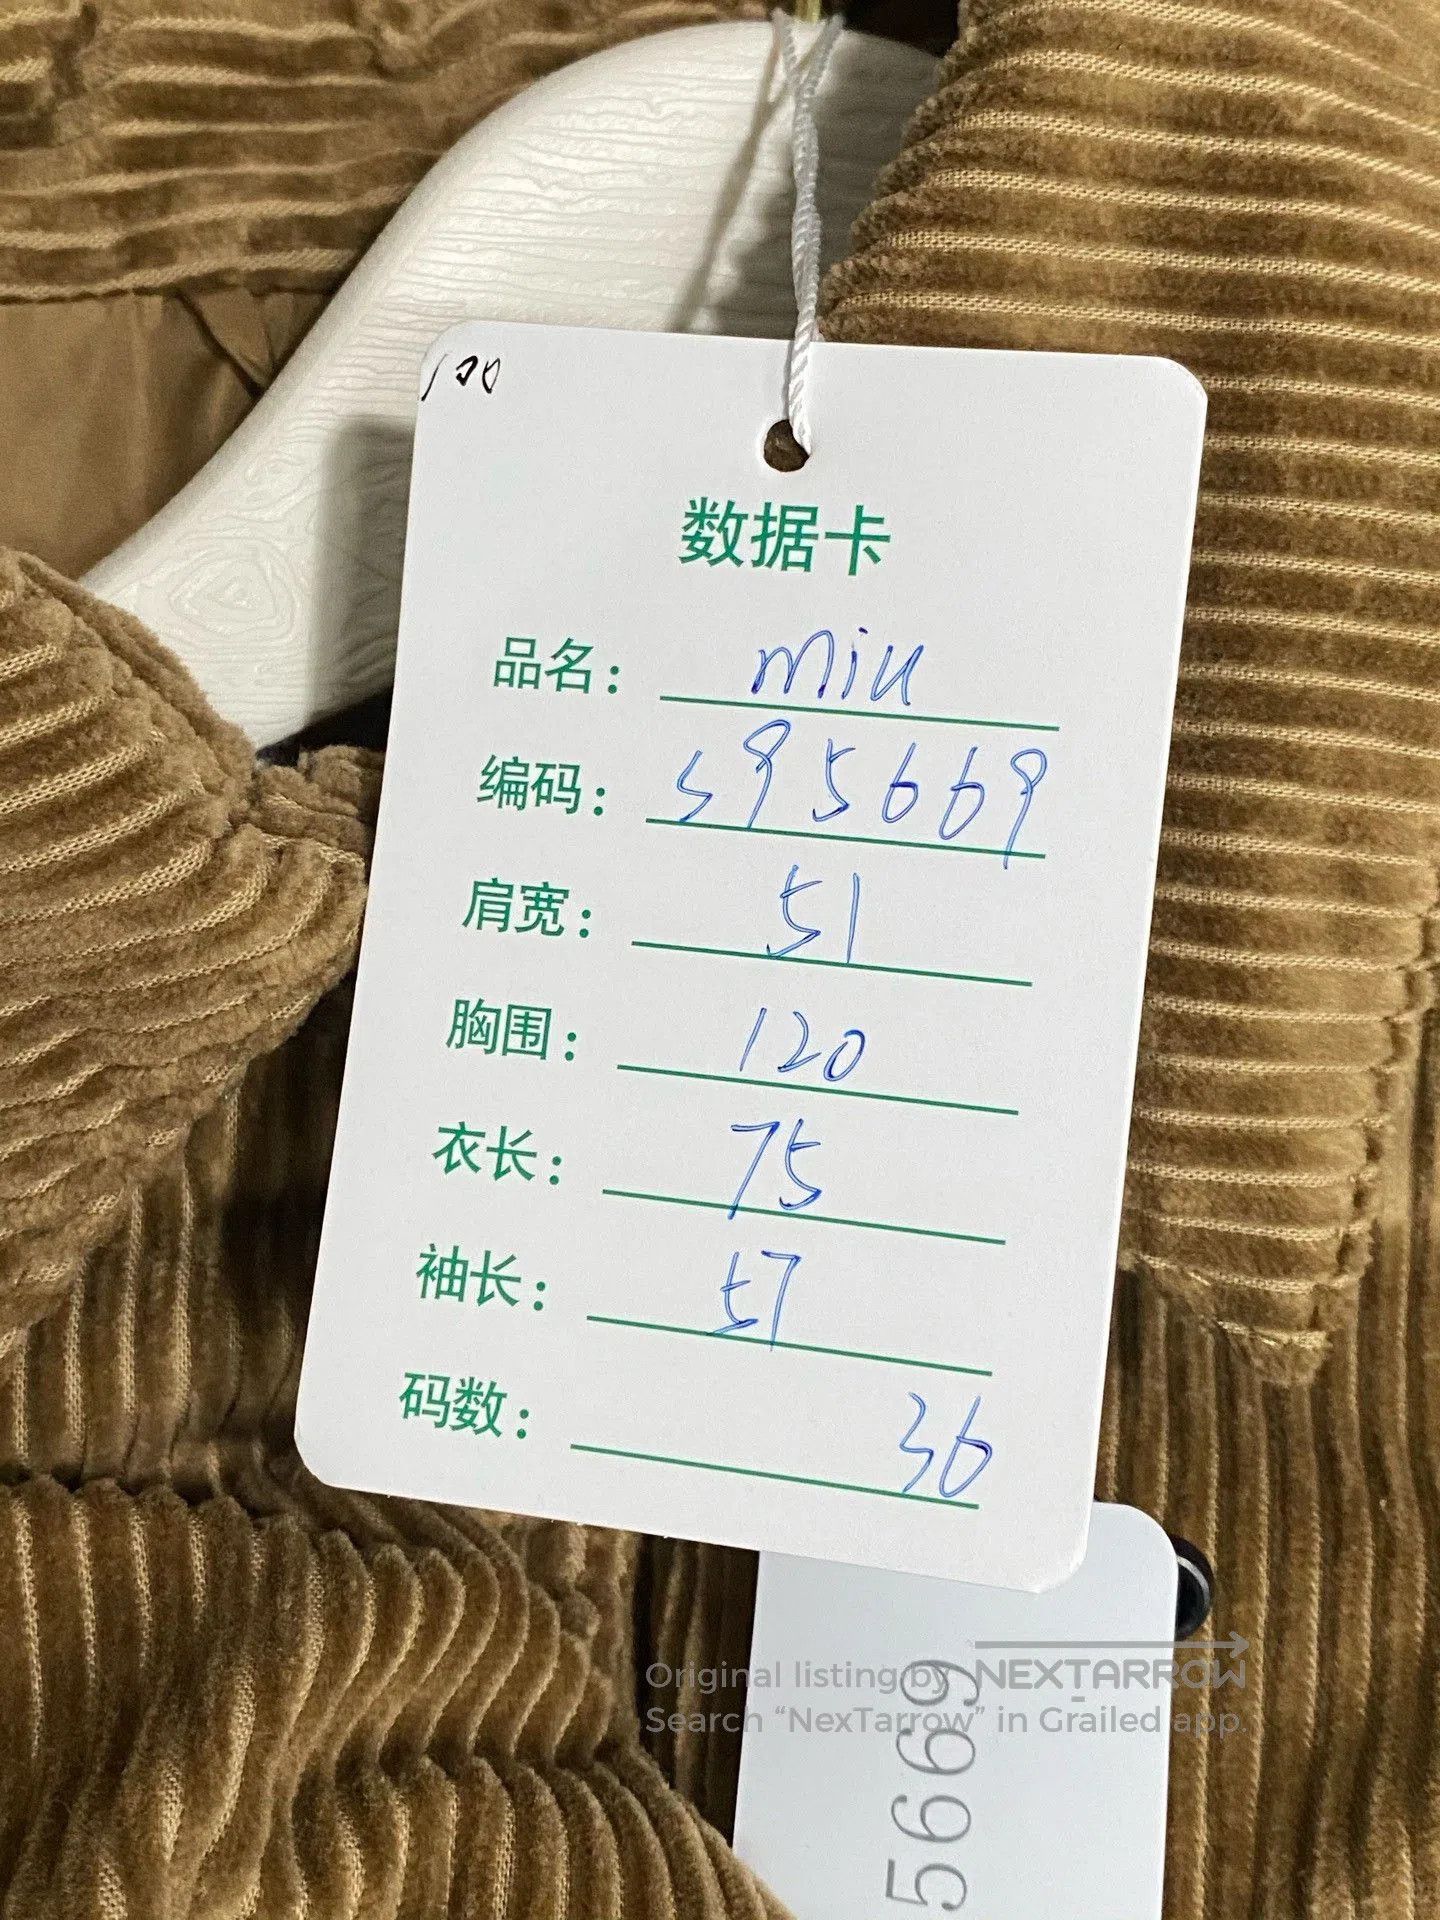 100
数据卡
品名: miu
编码: S95669
肩宽: 51
胸围: 120
衣长: 75
袖长: 57
码数: 36
Original listing by NEXTARROW
Search “NexTarrow” in Grailed app.
5669